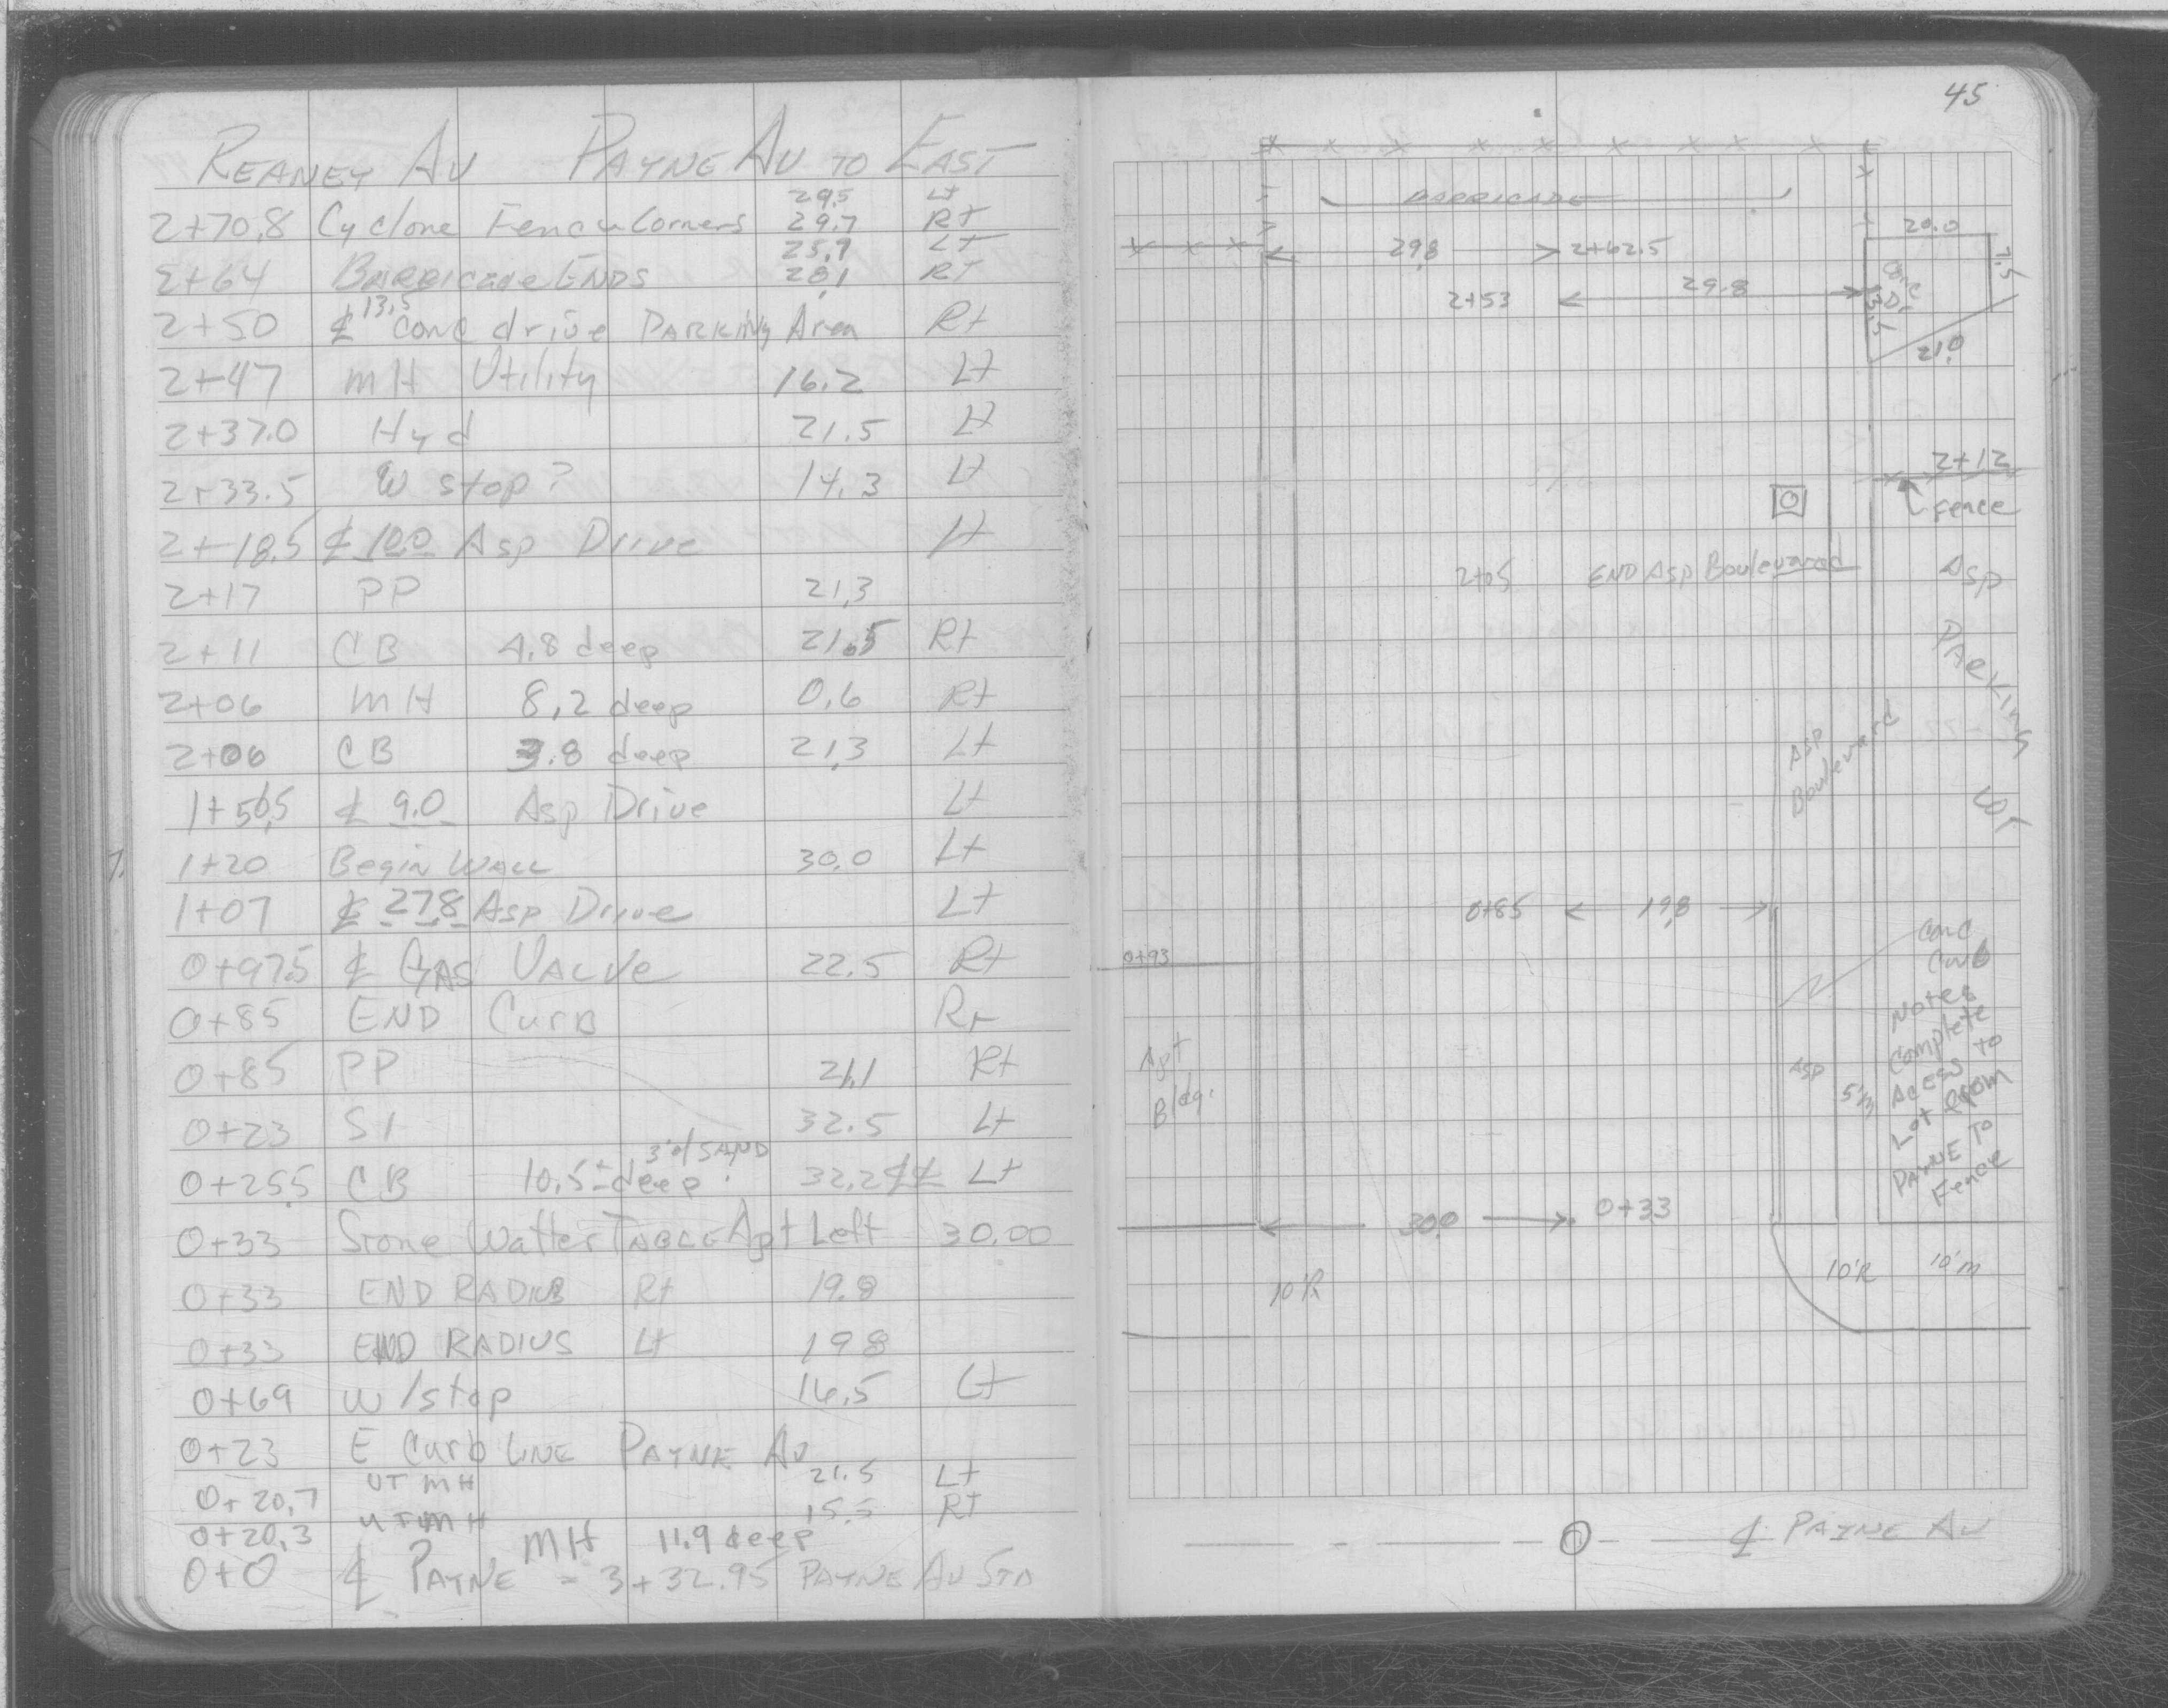 REANEY AV PAYNE AV TO EAST
29.5 Lt
2+70.8 Cyclone Fence Corners 29.7 Rt
25.9 Lt
2+64 BARRICADE ENDS 28.1 RT
2+50 ₵ 13.5 conc drive PARKING Area Rt
2+47 MH Utility 16.2 Lt
2+37.0 Hyd 21.5 Lt
2+33.5 W stop? 14.3 Lt
2+18.5 ₵ 10.0 Asp Drive Lt
2+17 PP 21.3
2+11 CB 4.8 deep 21.5 Rt
2+06 MH 8.2 deep 0.6 Rt
2+06 CB 3.8 deep 21.3 Lt
1+56.5 ₵ 9.0 Asp Drive Lt
1+20 Begin WALL 30.0 Lt
1+07 ₵ 27.8 Asp Drive Lt
0+97.5 ₵ GAS VALVE 22.5 Rt
0+85 END CURB Rt
0+85 PP 21.1 Rt
0+23 S1 32.5 Lt
3'of SAND
0+25.5 CB 10.5± deep 32.2 Lt
0+33 Stone Watter TABLE Apt Left 30.00
0+33 END RADIUS Rt 19.8
0+33 END RADIUS Lt 19.8
0+69 W/stop 16.5 Lt
0+23 E Curb LINE PAYNE AV
0+20.7 UT MH 21.5 Lt
0+20.3 UT MH 15.5 RT
MH 11.9 deep
0+0 ₵ PAYNE = 3+32.95 PAYNE AV STA
45
BARRICADE
20.0
29.8 2+62.5
7.5
2+53 29.8
Conc Dr
13.5
21.0
2+12
fence
2+05 END Asp Boulevard
Asp
PARKING
LOT
Asp
Boulevard
0+85 19.8
0+93
Conc
Curb
Note
Complete
Access to
Lot from
PAYNE TO
Fence
Apt
Bldg.
Asp
30.0 0+33
10'R
10'R
10'm
₵ PAYNE AV